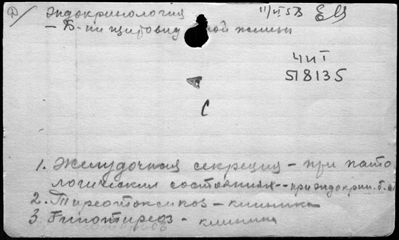 Эндокринология
– Б-ни щитовид ной железы
518135
С
1. Желудочная секреция – при пато
логических состояниях -- при эндокрин. б.
2. Тиреотоксикоз – клиника
3. Гипотиреоз – клиника